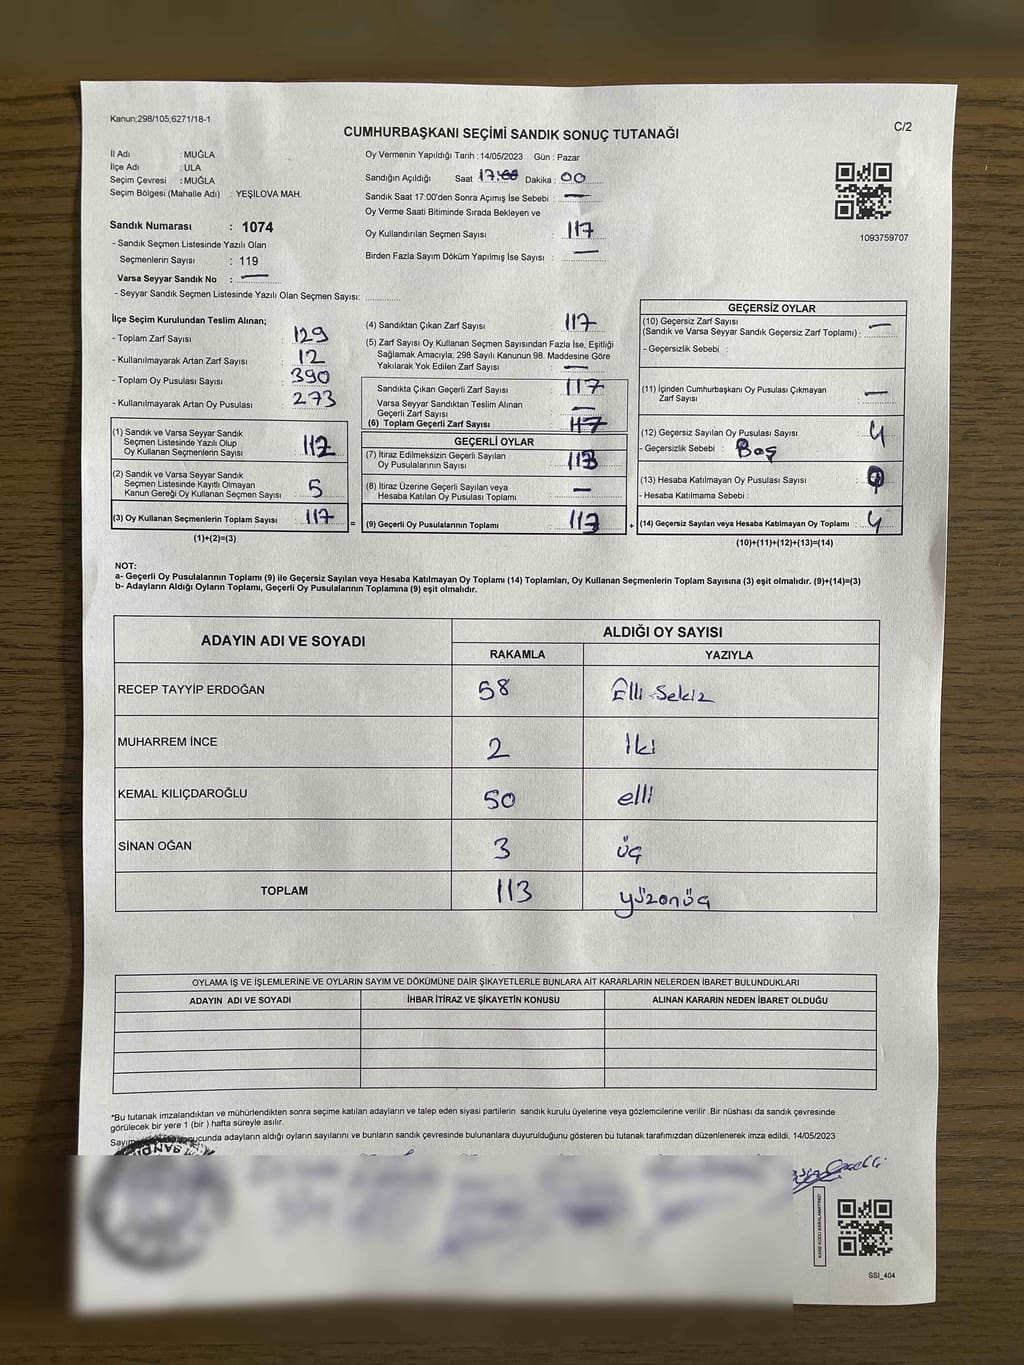 Kanun;298/105;6271/18-1
C/2
CUMHURBAŞKANI SEÇİMİ SANDIK SONUÇ TUTANAĞI
İl Adı : MUĞLA
İlçe Adı : ULA
Seçim Çevresi : MUĞLA
Seçim Bölgesi (Mahalle Adı) : YEŞİLOVA MAH.
Sandık Numarası : 1074
- Sandık Seçmen Listesinde Yazılı Olan
Seçmenlerin Sayısı : 119
Varsa Seyyar Sandık No : —
- Seyyar Sandık Seçmen Listesinde Yazılı Olan Seçmen Sayısı:
Oy Vermenin Yapıldığı Tarih : 14/05/2023 Gün : Pazar
Sandığın Açıldığı Saat 17:00 Dakika : 00
Sandık Saat 17:00'den Sonra Açımış İse Sebebi : —
Oy Verme Saati Bitiminde Sırada Bekleyen ve
Oy Kullandırılan Seçmen Sayısı : 117
Birden Fazla Sayım Döküm Yapılmış İse Sayısı : —
1093759707
İlçe Seçim Kurulundan Teslim Alınan;
- Toplam Zarf Sayısı : 129
- Kullanılmayarak Artan Zarf Sayısı : 12
- Toplam Oy Pusulası Sayısı : 390
- Kullanılmayarak Artan Oy Pusulası : 273
(1) Sandık ve Varsa Seyyar Sandık
Seçmen Listesinde Yazılı Olup
Oy Kullanan Seçmenlerin Sayısı : 112
(2) Sandık ve Varsa Seyyar Sandık
Seçmen Listesinde Kayıtlı Olmayan
Kanun Gereği Oy Kullanan Seçmen Sayısı : 5
(3) Oy Kullanan Seçmenlerin Toplam Sayısı : 117
(1)+(2)=(3)
=
(4) Sandıktan Çıkan Zarf Sayısı : 117
(5) Zarf Sayısı Oy Kullanan Seçmen Sayısından Fazla İse, Eşitliği
Sağlamak Amacıyla; 298 Sayılı Kanunun 98. Maddesine Göre
Yakılarak Yok Edilen Zarf Sayısı : —
Sandıkta Çıkan Geçerli Zarf Sayısı : 117
Varsa Seyyar Sandıktan Teslim Alınan
Geçerli Zarf Sayısı : —
(6) Toplam Geçerli Zarf Sayısı : 117
GEÇERLİ OYLAR
(7) İtiraz Edilmeksizin Geçerli Sayılan
Oy Pusulalarının Sayısı : 113
(8) İtiraz Üzerine Geçerli Sayılan veya
Hesaba Katılan Oy Pusulası Toplamı : —
(9) Geçerli Oy Pusulalarının Toplamı : 113
+
GEÇERSİZ OYLAR
(10) Geçersiz Zarf Sayısı
(Sandık ve Varsa Seyyar Sandık Geçersiz Zarf Toplamı) : —
- Geçersizlik Sebebi :
(11) İçinden Cumhurbaşkanı Oy Pusulası Çıkmayan
Zarf Sayısı : —
(12) Geçersiz Sayılan Oy Pusulası Sayısı : 4
- Geçersizlik Sebebi : Boş
(13) Hesaba Katılmayan Oy Pusulası Sayısı :
- Hesaba Katılmama Sebebi :
(14) Geçersiz Sayılan veya Hesaba Katılmayan Oy Toplamı : 4
(10)+(11)+(12)+(13)=(14)
NOT:
a- Geçerli Oy Pusulalarının Toplamı (9) ile Geçersiz Sayılan veya Hesaba Katılmayan Oy Toplamı (14) Toplamları, Oy Kullanan Seçmenlerin Toplam Sayısına (3) eşit olmalıdır. (9)+(14)=(3)
b- Adayların Aldığı Oyların Toplamı, Geçerli Oy Pusulalarının Toplamına (9) eşit olmalıdır.
ADAYIN ADI VE SOYADI
ALDIĞI OY SAYISI
RAKAMLA YAZIYLA
RECEP TAYYİP ERDOĞAN 58 Elli Sekiz
MUHARREM İNCE 2 İki
KEMAL KILIÇDAROĞLU 50 elli
SİNAN OĞAN 3 üç
TOPLAM 113 yüzonüç
OYLAMA İŞ VE İŞLEMLERİNE VE OYLARIN SAYIM VE DÖKÜMÜNE DAİR ŞİKAYETLERLE BUNLARA AİT KARARLARIN NELERDEN İBARET BULUNDUKLARI
ADAYIN ADI VE SOYADI İHBAR İTİRAZ VE ŞİKAYETİN KONUSU ALINAN KARARIN NEDEN İBARET OLDUĞU
*Bu tutanak imzalandıktan ve mühürlendikten sonra seçime katılan adayların ve talep eden siyasi partilerin sandık kurulu üyelerine veya gözlemcilerine verilir .Bir nüshası da sandık çevresinde
görülecek bir yere 1 (bir ) hafta süreyle asılır.
adayların aldığı oyların sayılarını ve bunların sandık çevresinde bulunanlara duyurulduğunu gösteren bu tutanak tarafımızdan düzenlenerek imza edildi. 14/05/2023
KARE KODU KARALAMAYINIZ!
SSI_404